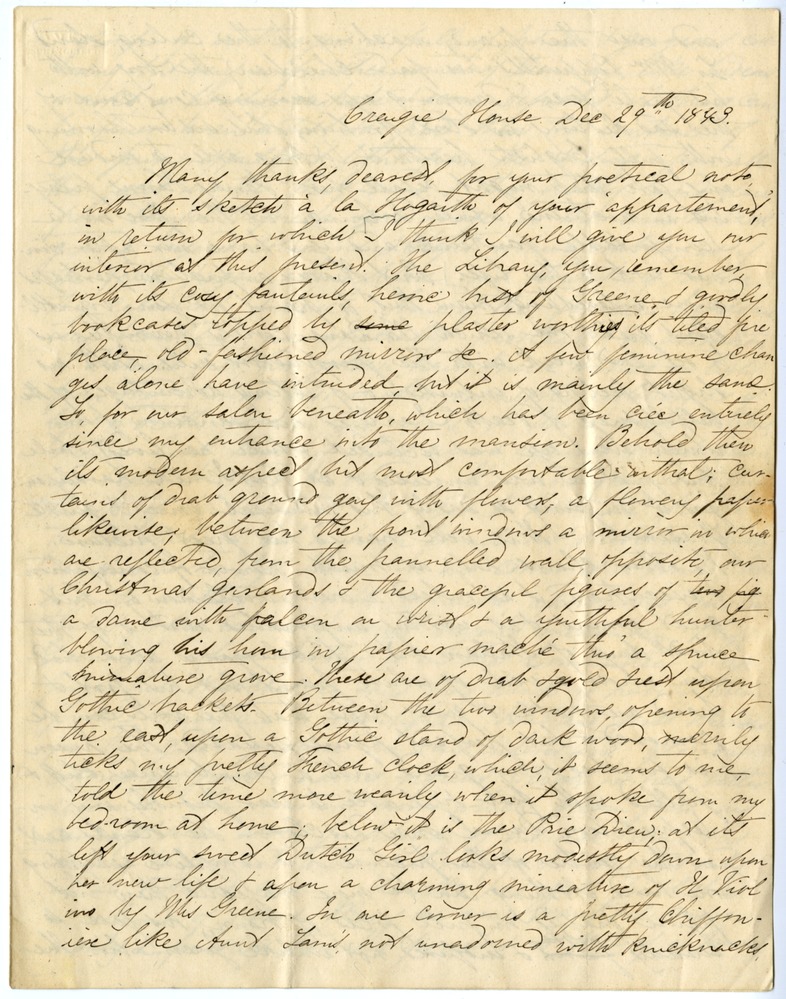 Craigie House Dec 29th 1843.
Many thanks, dearest, for your poetical note,
with its sketch à la Hogarth of your "appartement",
in return for which I think I will give you our
interior at this present. The Library, you remember,
with its cosy fauteuils, heroic bust of Greene, & goodly
bookcases topped by some plaster worthies, its tiled fire
place, old-fashioned mirrors &c. A few feminine chan
ges alone have intruded, but it is mainly the same.
So, for our salon beneath, which has been cree entirely
since my entrance into the mansion. Behold then
its modern aspect but most comfortable withal; cur-
tains of drab ground gay with flowers, a flowery paper
likewise; between the front windows a mirror in which
are reflected, from the pannelled wall opposite, our
Christmas garlands & the graceful figures of two fig
a dame with falcon on wrist & a youthful hunter
blowing his horn in papier maché thro' a spruce
miniature grove. These are of drab & gold & rest upon
Gothic brackets. Between the two windows, opening to
the east, upon a Gothic stand of dark wood, merrily
ticks my pretty French clock, which, it seems to me,
told the time more wearily when it spoke from my
bed-room at home; below it is the Prie Dieu; at its
left your sweet Dutch Girl looks modestly down upon
her new life & upon a charming mineature of Il Viol
ino by Mrs Greene. In one corner is a pretty Chiffon-
iere like Aunt Sam's, not unadorned with knicknacks,